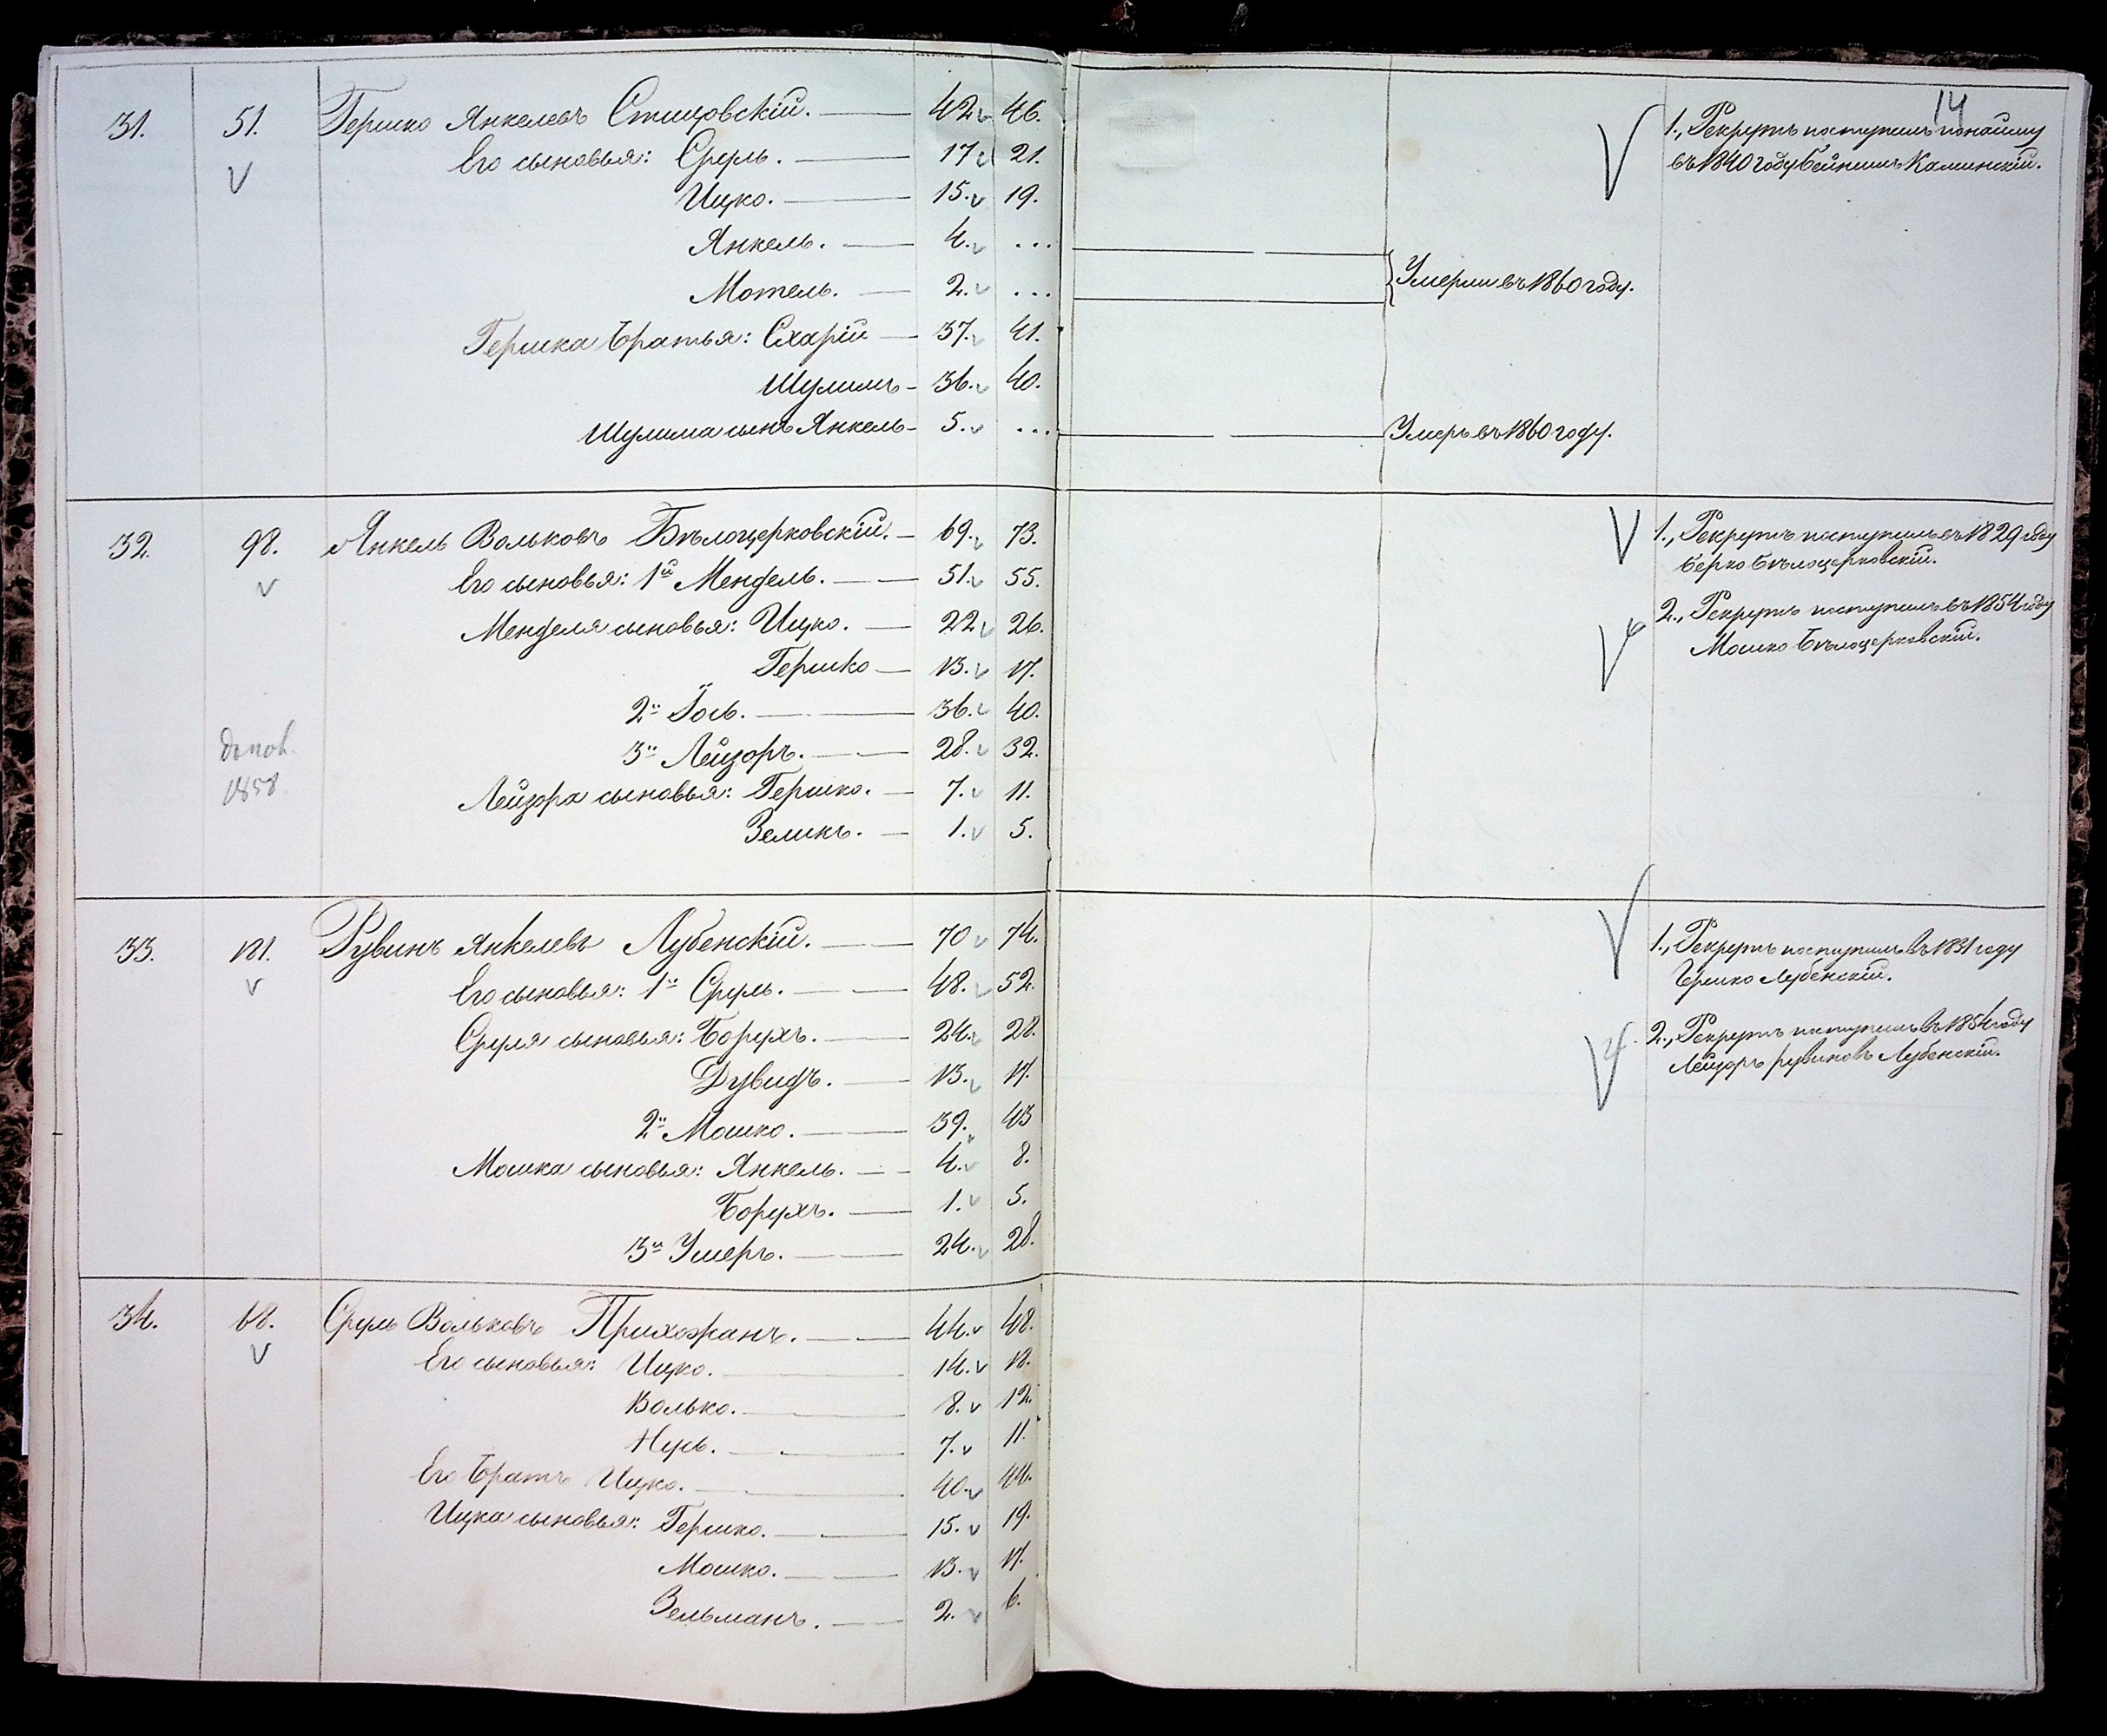 14
31. 51. Гершко Янкелевъ Стицовскій. 42. 46. 1., Рекрутъ поступилъ по найму
Его сыновья: Сруль. 17 21. въ 1840 году Бейнишъ Каминскій.
Ицко. 15. 19.
Янкель. 4. ...
Мотель. 2. ... Умерли въ 1860 году.
Гершка братья: Схарій 37. 41.
Шулимъ 36. 40.
Шулима сынъ Янкель 5. ... Умеръ въ 1860 году.
32. 98. Янкель Вольковъ Бѣлоцерковскій. 69. 73. 1., Рекрутъ поступилъ въ 1829 году
Берко Бѣлоцерковскій.
Его сыновья: 1й Мендель. 51. 55.
2., Рекрутъ поступилъ въ 1854 году
Менделя сыновья: Ицко. 22. 26. Мошко Бѣлоцерковскій.
Гершко 13. 17.
2й Іось. 36. 40.
3й Лейзоръ. 28. 32.
1858. Лейзора сыновья: Гершко. 7. 11.
Зеликъ. 1. 5.
33. 181. Рувинъ Янкелевъ Лубенскій. 70 74. 1., Рекрутъ поступилъ въ 1831 году
Гершко Лубенскій.
Его сыновья: 1й Сруль. 48. 52.
Сруля сыновья: Борухъ. 24. 28. 2., Рекрутъ поступилъ въ 1854 году
Лейзоръ Рувиновъ Лубенскій.
Дувидъ. 13. 17.
2й Мошко. 39. 43
Мошка сыновья: Янкель. 4. 8.
Борухъ. 1. 5.
3й Умеръ. 24. 28.
34. 68. Сруль Вольковъ Прихожанъ. 44. 48.
Его сыновья: Ицко. 14. 18.
Волько. 8. 12.
Нусь. 7. 11.
Его братъ Ицко. 40. 44.
Ицка сыновья: Гершко. 15. 19.
Мошко. 13. 17.
Зельманъ. 2. 6.